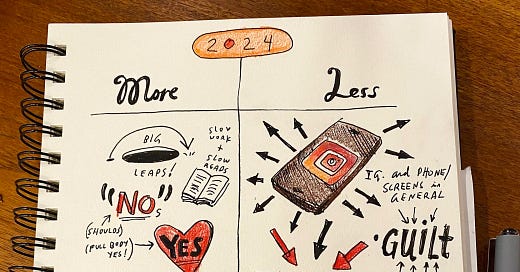 2024
More
Less
BIG
LEAPS!
SLOW
WORK
+
SLOW
READS
"NO"s
(SHOULDS)
(FULL BODY
YES!)
YES
IG. and PHONE/
SCREENS in
GENERAL
GUILT